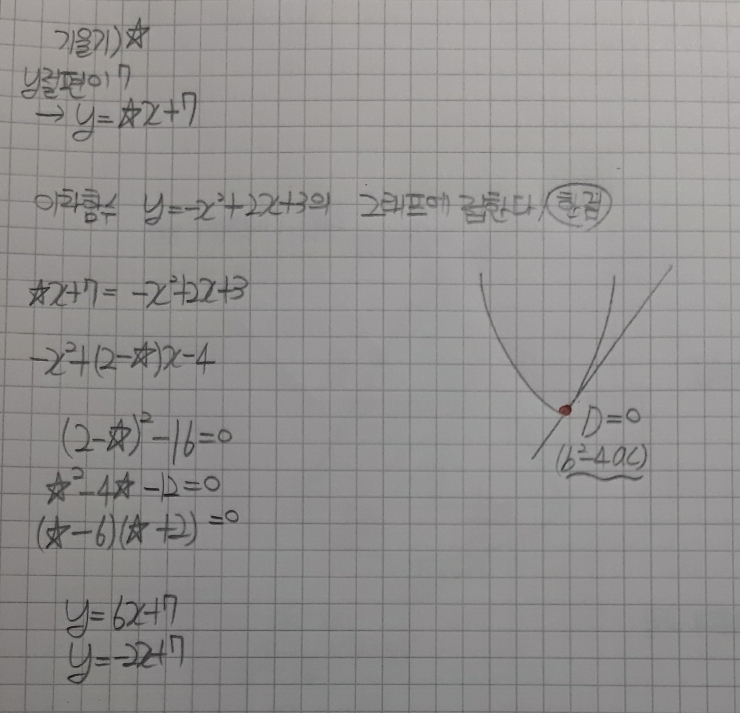 기울기)☆
y절편이7
→ y=☆x+7
이차함수 y=-x²+2x+3의 그래프에 접한다/한점
☆x+7= -x²+2x+3
-x²+(2-☆)x-4
(2-☆)²-16=0
☆²-4☆-12=0
(☆-6)(☆+2)=0
y=6x+7
y=-2x+7
D=0
(b²-4ac)